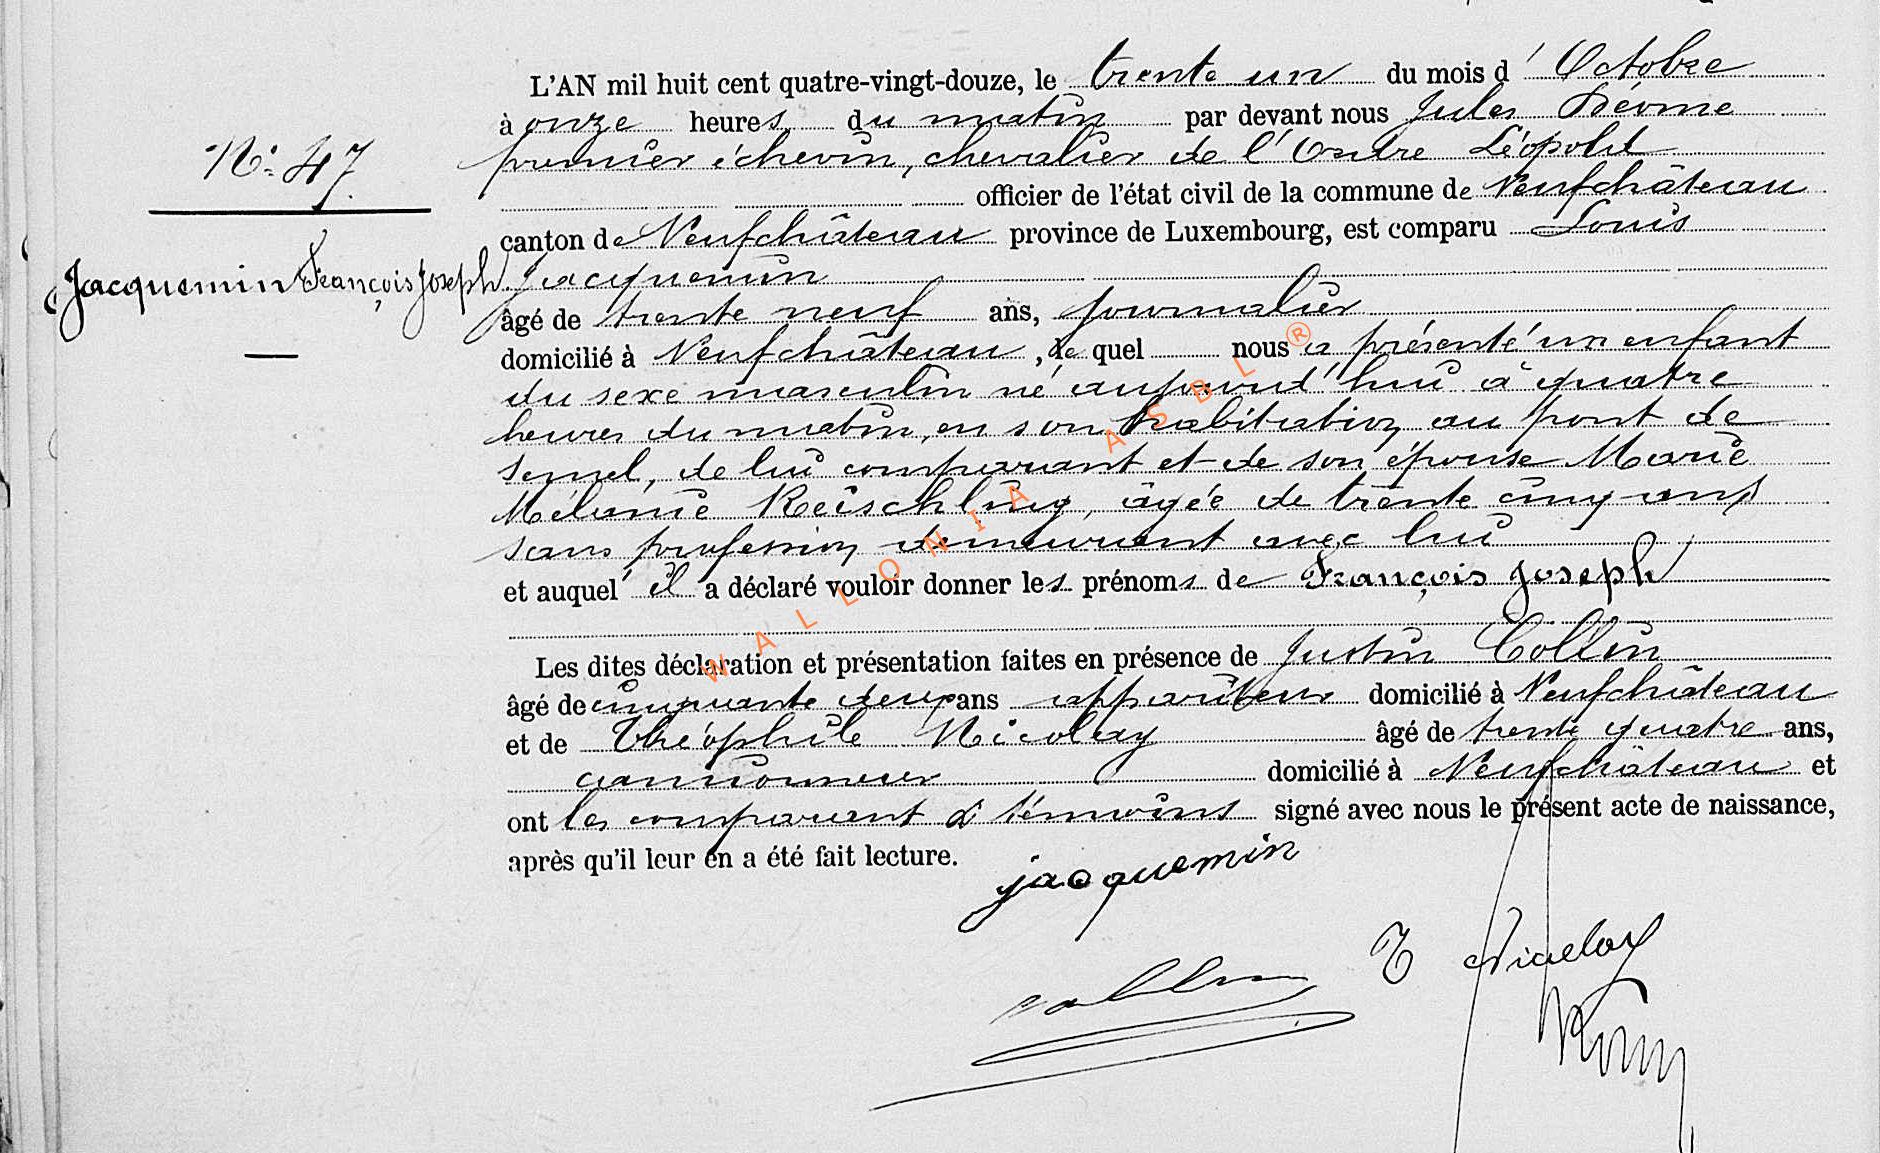 L'AN mil huit cent quatre-vingt-douze, le trente un du mois d' Octobre
à onze heures du matin par devant nous Jules
N° 47
premier échevin, chevalier de l'Ordre Léopold
officier de l'état civil de la commune de Neufchâteau
canton de Neufchâteau province de Luxembourg, est comparu Louis
Jacquemin François Joseph
Jacquemin
âgé de trente neuf ans, journalier
domicilié à Neufchâteau, le quel nous a présenté un enfant
du sexe masculin né aujourd'hui à quatre
heures du matin, en son habitation au pont de
semel, de lui comparant et de son épouse Marie
Mélanie Reischling, âgée de trente cinq ans
sans profession demeurant avec lui
et auquel il a déclaré vouloir donner les prénoms de François Joseph
Les dites déclaration et présentation faites en présence de Justin Collin
âgé de cinquante deux ans appariteur domicilié à Neufchâteau
et de Théophile Nicolay âgé de trente quatre ans,
domicilié à Neufchâteau et
ont les comparant & témoins signé avec nous le présent acte de naissance,
après qu'il leur en a été fait lecture.
jacquemin
T Nicolay
collin
WALLONIA ASBL ®